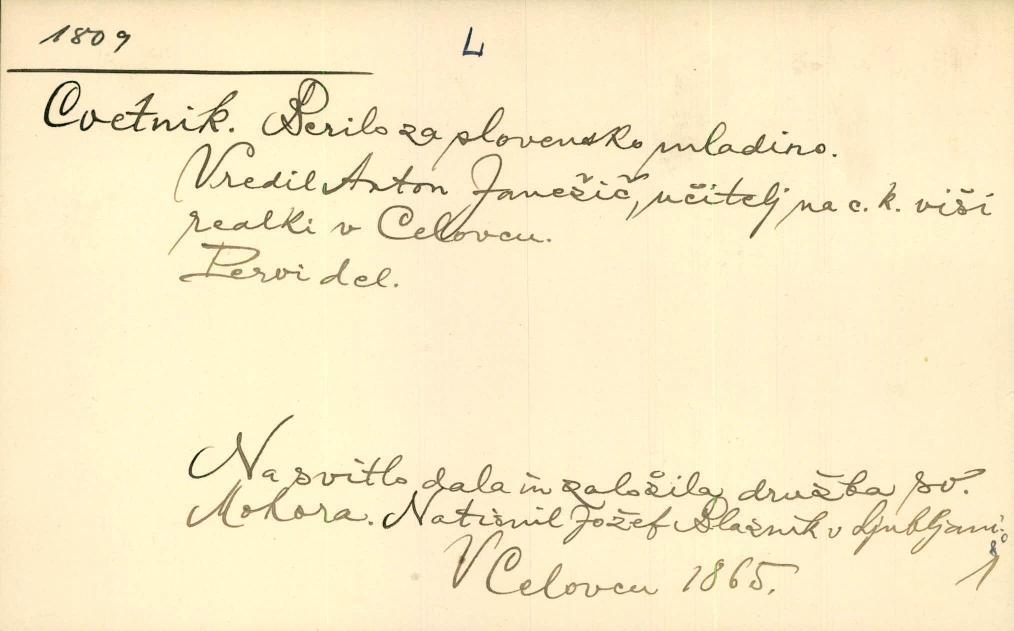 1809
L
Cvetnik. Berilo za slovensko mladino.
Vredil Anton Janežič, učitelj na c. k. viši
realki v Celovcu.
Pervi del.
Na svitlo dala in založila družba sv.
Mohora. Natisnil Jožef Blasnik v Ljubljani.
8°
V Celovcu 1865. 1